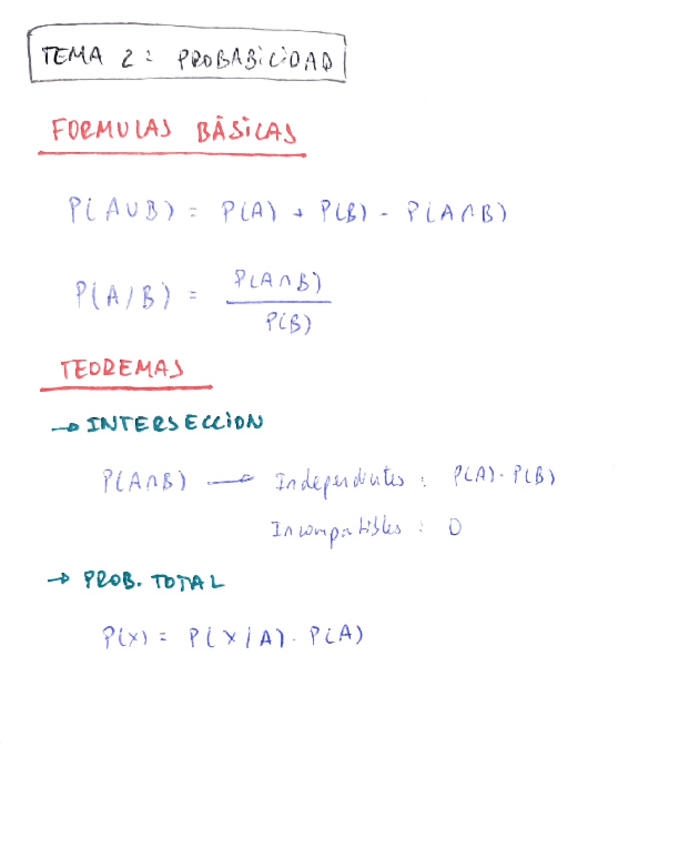 TEMA 2: PROBABILIDAD
FORMULAS BÁSICAS
P(A∪B) = P(A) + P(B) - P(A∩B)
P(A/B) = P(A∩B) / P(B)
TEOREMAS
→ INTERSECCION
P(A∩B) → Independientes: P(A)·P(B)
Incompatibles: 0
→ PROB. TOTAL
P(X) = P(X/A)·P(A)